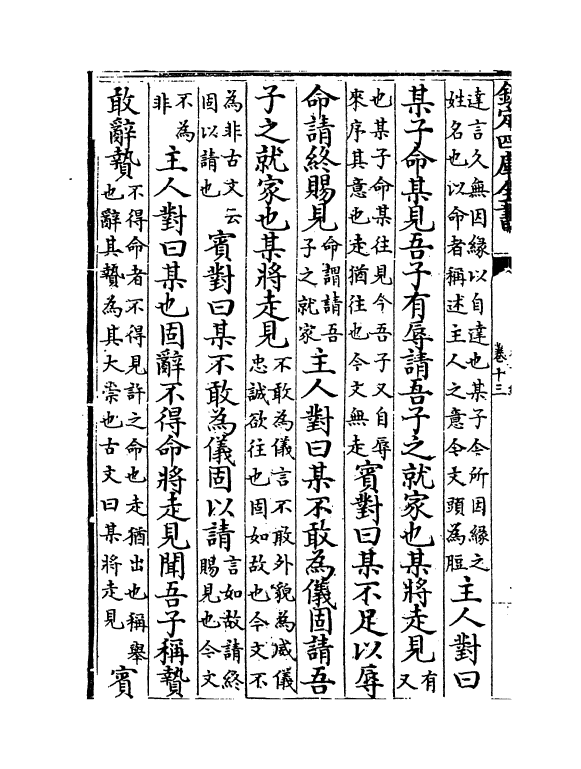 欽定四庫全書
卷十三
達言久無因緣以自達也某子今所因緣之
姓名也以命者稱述主人之意今文頭為脰
主人對曰
某子命某見吾子有辱請吾子之就家也某將走見
有
又
也某子命某往見今吾子又自辱
來序其意也走猶往也今文無走
賓對曰某不足以辱
命請終賜見
命謂請吾
子之就家
主人對曰某不敢為儀固請吾
子之就家也某將走見
不敢為儀言不敢外貌為威儀
忠誠欲往也固如故也今文不
為非古文云
固以請也
賓對曰某不敢為儀固以請
言如故請終
賜見也今文
不為
非
主人對曰某也固辭不得命將走見聞吾子稱贄
敢辭贄
不得命者不得見許之命也走猶出也稱舉
也辭其贄為其大崇也古文曰某將走見
賓